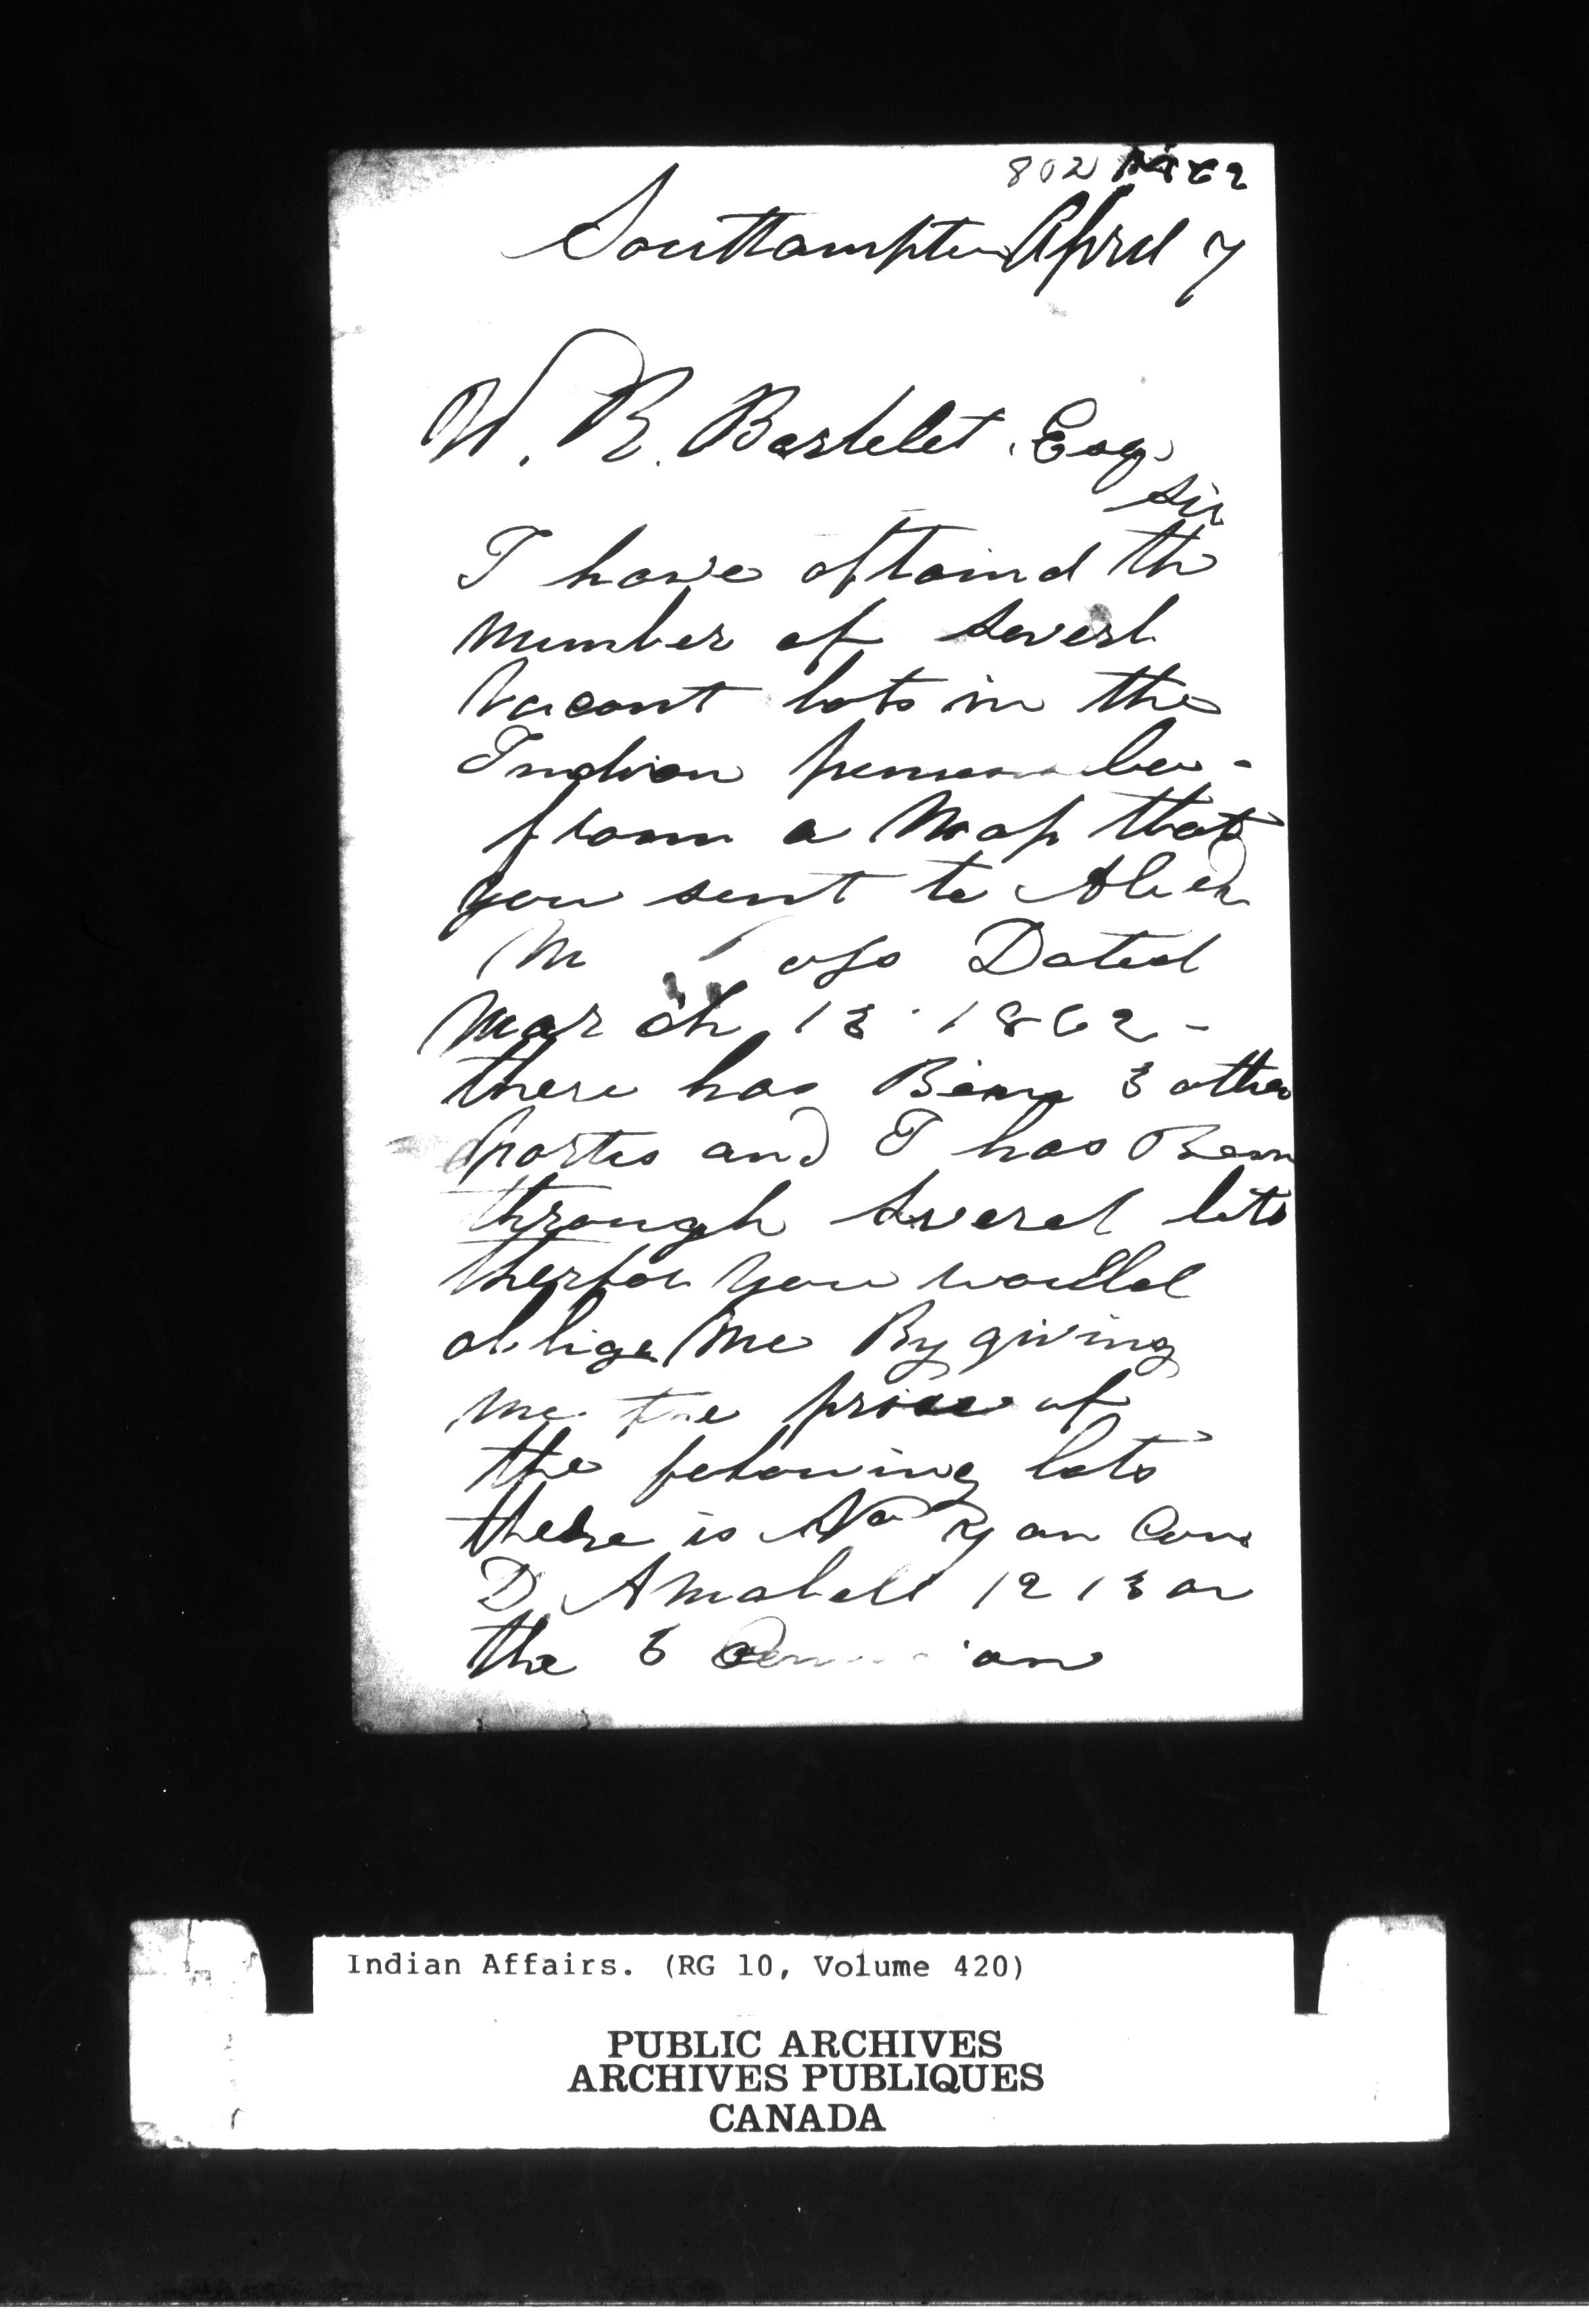 802
Southampton April 7
W. R. Bartelet. Esq.
Sir
I have obtaind the
number of severl
Vacant lots in the
Indian
from a Map that
you sent to Alex
Dated
March 13. 1862 -
there has Being 3 other
parties and I has Been
through several lots
therfor you would
oblige Me By giving
me the price of
the folowing lots
there is No 7 on Con
D Amabell 12 13 on
the 3
Indian Affairs. (RG 10, Volume 420)
PUBLIC ARCHIVES
ARCHIVES PUBLIQUES
CANADA